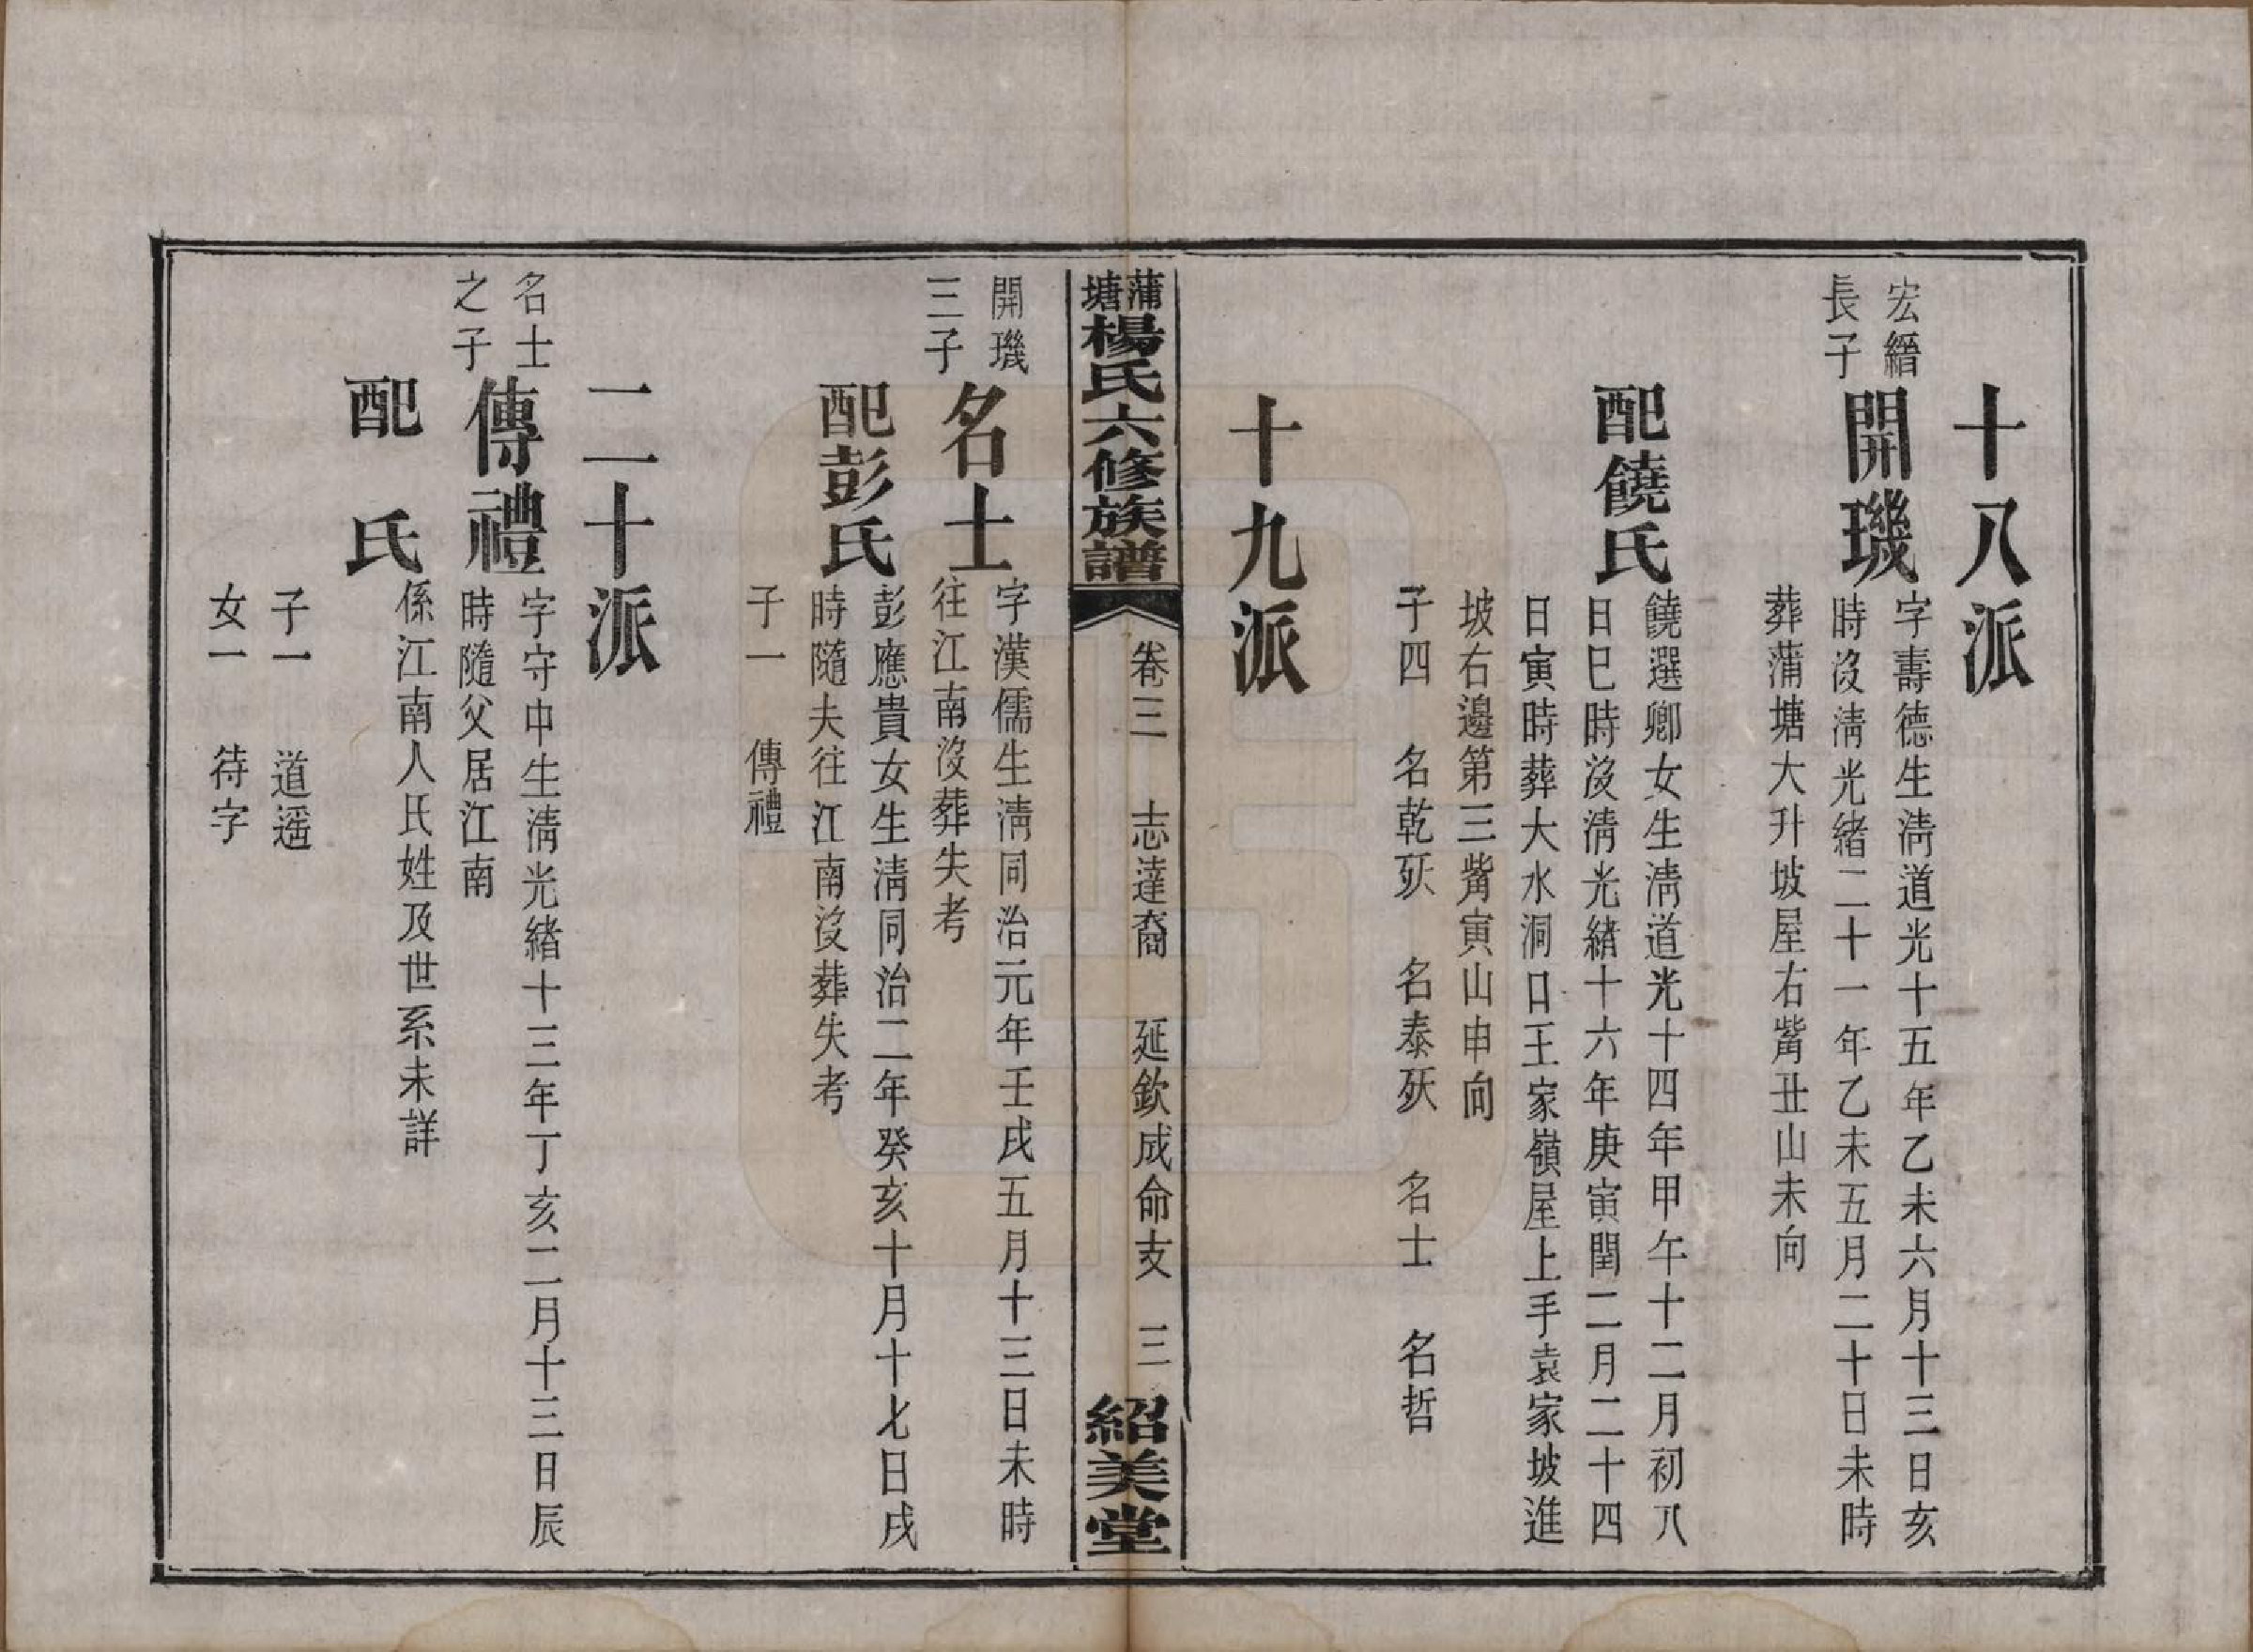 十八派
宏縉
長子
開璣
字壽德生淸道光十五年乙未六月十三日亥
時沒淸光緒二十一年乙未五月二十日未時
葬蒲塘大升坡屋右觜丑山未向
配饒氏
饒選卿女生淸道光十四年甲午十二月初八
日巳時沒淸光緒十六年庚寅閏二月二十四
日寅時葬大水洞口王家嶺屋上手袁家坡進
坡右邊第三觜寅山申向
子四 名乾殀 名泰殀 名士 名哲
十九派
蒲塘楊氏六修族譜
卷三 志達裔 延欽成命支 三
紹美堂
開璣
三子
名士
字漢儒生淸同治元年壬戌五月十三日未時
往江南沒葬失考
配彭氏
彭應貴女生淸同治二年癸亥十月十七日戌
時隨夫往江南沒葬失考
子一 傳禮
二十派
名士
之子
傳禮
字守中生淸光緒十三年丁亥二月十三日辰
時隨父居江南
配 氏
係江南人氏姓及世系未詳
子一 道遥
女一 待字